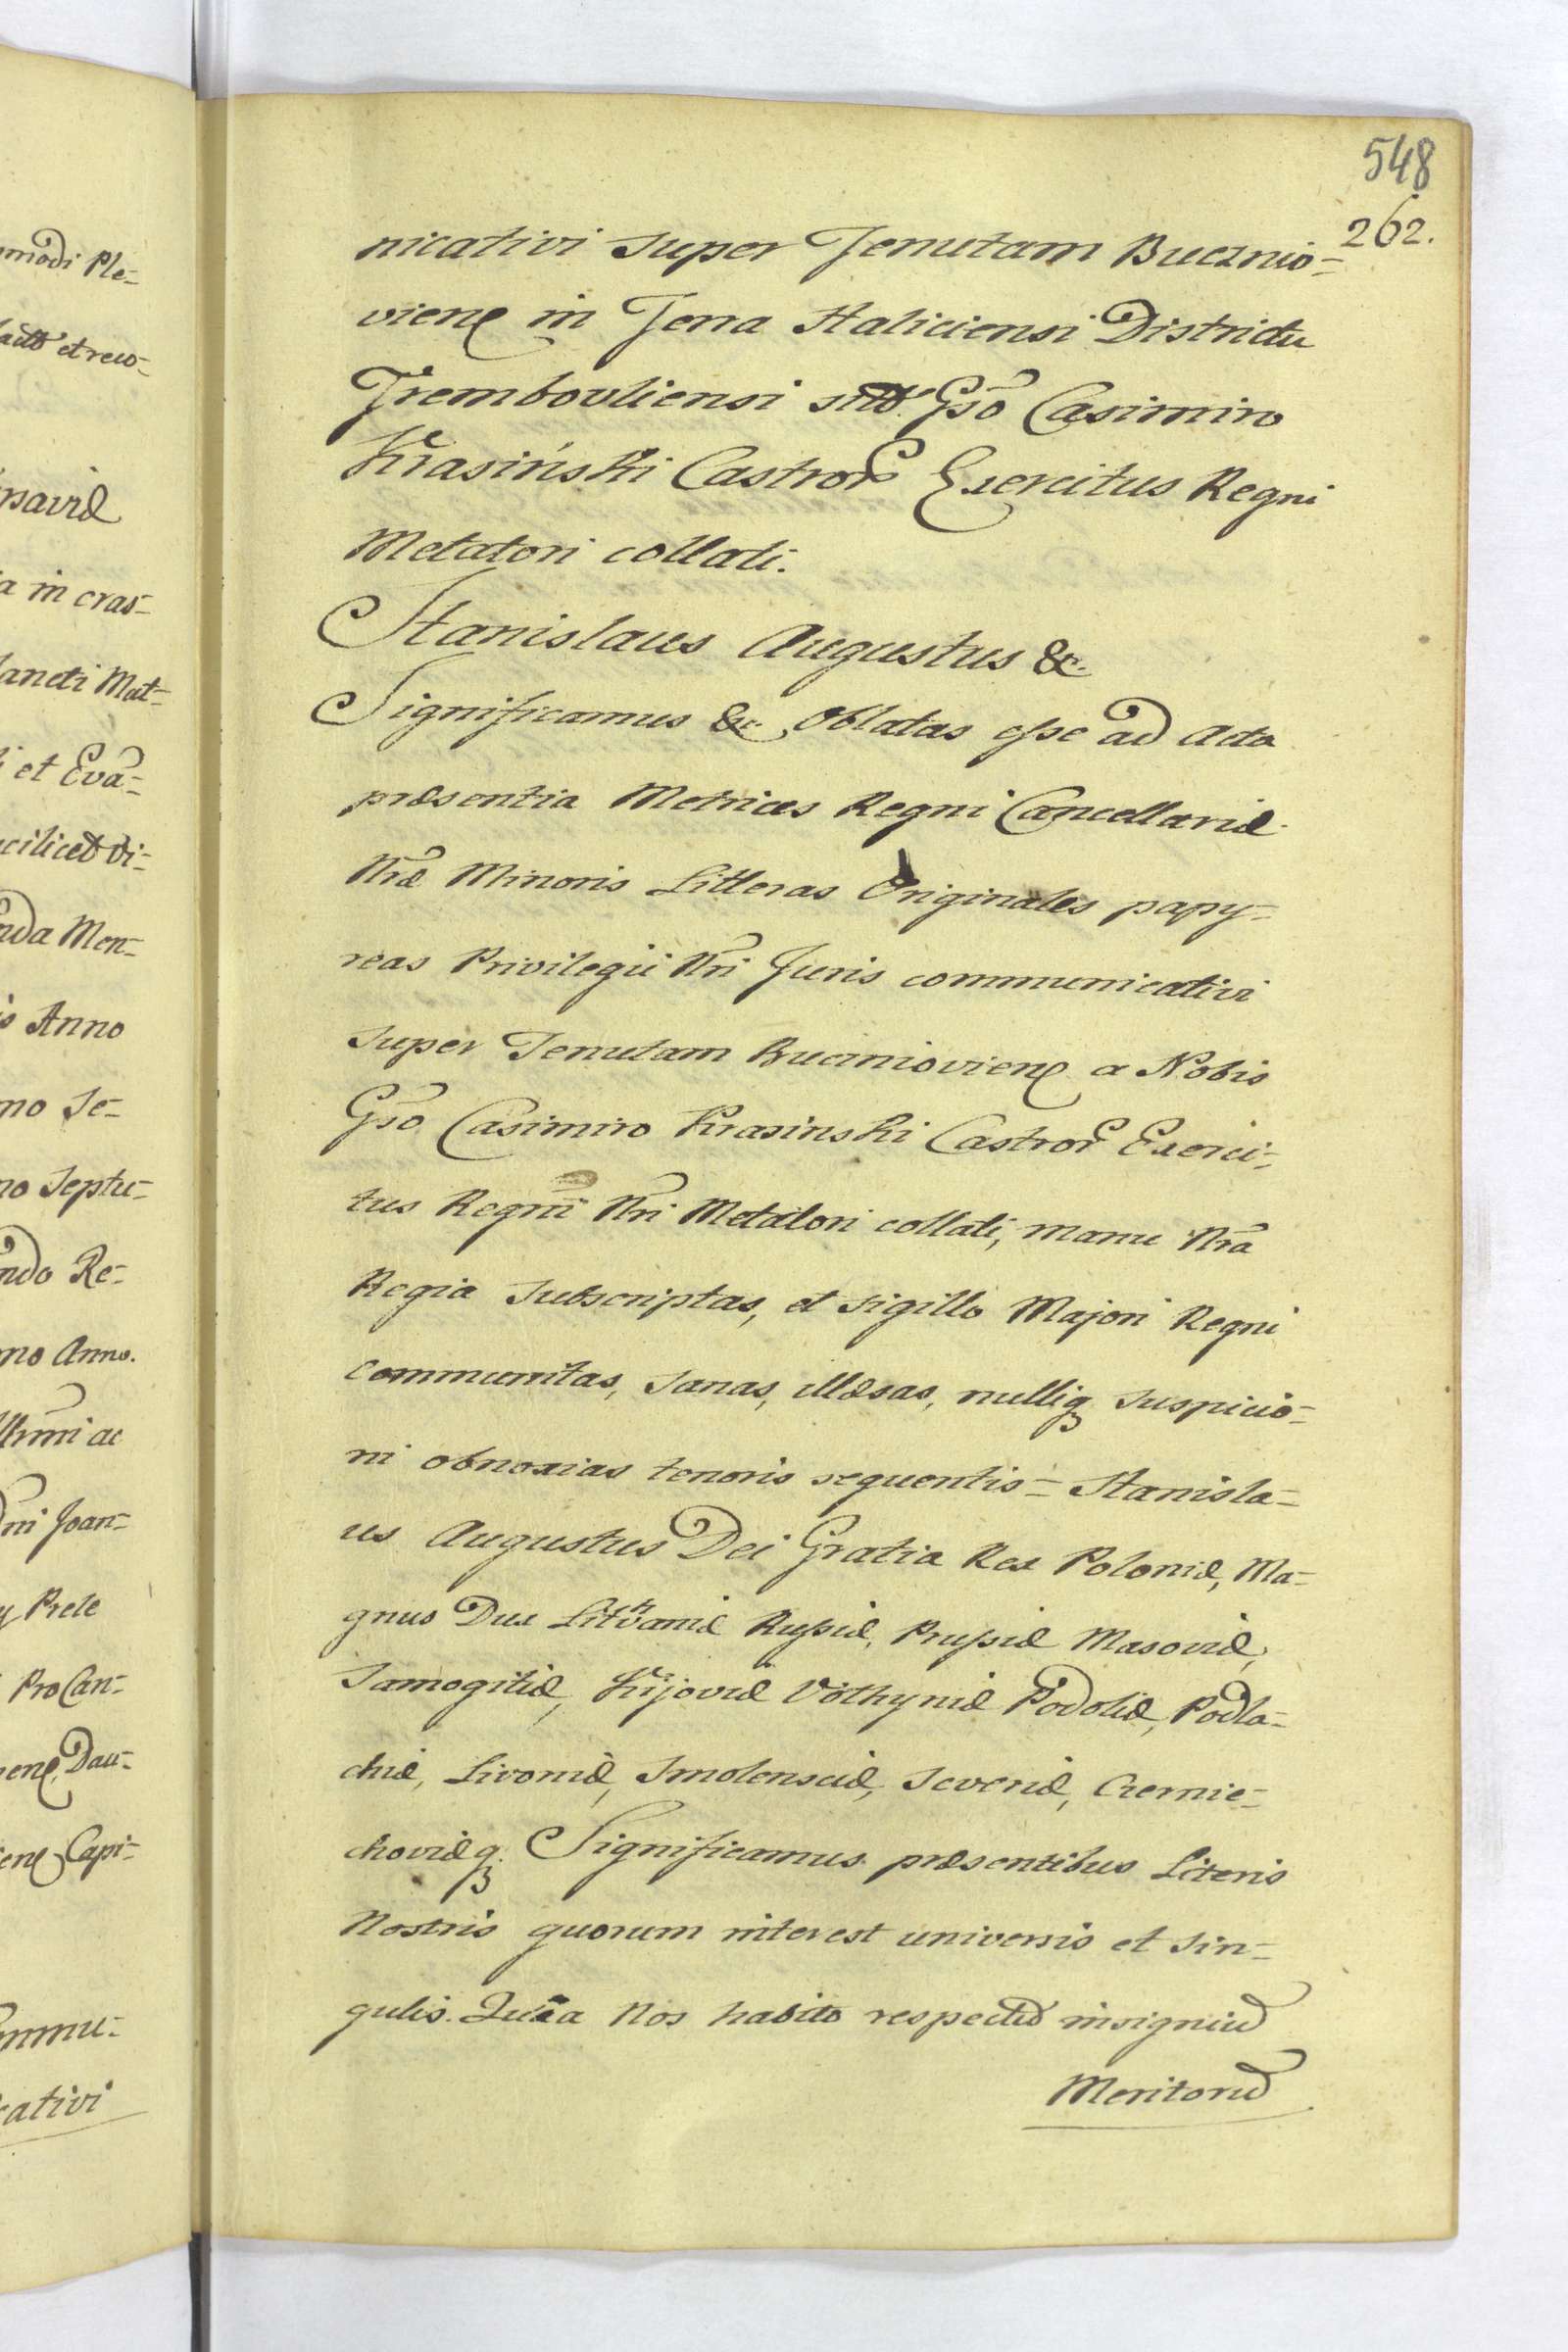 548
262.
nicativi super Tenutam Bucznio-
vienẽ in Terra Haliciensi Districtu
Trembovliensi sit̃ Gſo Casimiro
Krasiński Castror̃ Exercitus Regni
Metatori collati.
Stanislaus Augustus &c.
Significamus &c. Oblatas eſse ad Acta
præsentia Metrices Regni Cancellariæ
Nræ Minoris Litteras Originales papy-
reas Privilegii Nri Juris communicativi
super Tenutam Bucznioviene a Nobis
Gſo Casimiro Krasinski Castror̃ Exerci-
tus Regni Nri Metatori collati, manu Nrã
Regia subscriptas, et sigillo Majori Regni
communitas, sanas, illæsas, nulliq suspicio-
ni obnoxias tenoris sequentis = Stanisla-
us Augustus Dei Gratia Rex Poloniæ, Ma-
gnus Dux Lithvaniæ Ruſsiæ, Pruſsiæ Masoviæ,
Samogitiæ, Kijoviæ Volhyniæ Podoliæ, Podla-
chiæ, Livoniæ, Smolensciæ, Severiæ, Czernie-
choviæq. Significamus præsentibus Literis
Nostris quorum interest universis et sin-
gulis. Quia Nos habito respectu insigniũ
Meritorũ
modi Ple-
et reco-
in cras-
Sancti Mat-
et Evã-
scilicet Di-
Men-
Anno
mo Se-
mo Septu-
Re-
mo Anno.
ac
Joan-
Prele
ProCan-
Dau-
Capi-
mmu-
cativi